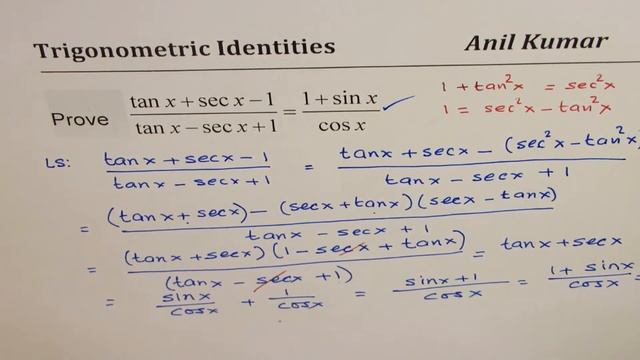 Trigonometric Identities Anil Kumar
Prove (tan x + sec x − 1)/(tan x − sec x + 1) = (1 + sin x)/cos x ✓
1 + tan²x = sec²x
1 = sec²x − tan²x
LS: (tanx + secx − 1)/(tanx − secx + 1) = (tanx + secx − (sec²x − tan²x)/(tanx − secx + 1)
= ((tanx + secx) − (secx + tanx)(secx − tanx))/(tanx − secx + 1)
= (tanx + secx)(1 − secx + tanx)/(tanx − secx + 1) = tanx + secx
= sinx/cosx + 1/cosx = (sinx + 1)/cosx = (1 + sinx)/cosx =